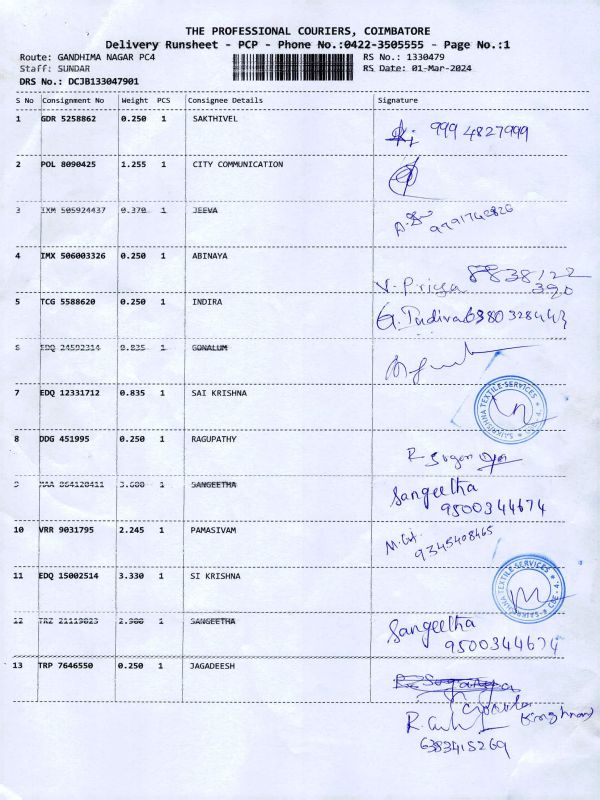 THE PROFESSIONAL COURIERS, COIMBATORE
Delivery Runsheet - PCP - Phone No.:0422-3505555 - Page No.:1
Route: GANDHIMA NAGAR PC4 RS No.: 1330479
Staff: SUNDAR RS Date: 01-Mar-2024
DRS No.: DCJB133047901
S No Consignment No Weight PCS Consignee Details Signature
1 GDR 5258862 0.250 1 SAKTHIVEL
999 4827999
2 POL 8090425 1.255 1 CITY COMMUNICATION
3 IXM 505924437 0.370 1 JEEVA
4 IMX 506003326 0.250 1 ABINAYA
V. Priya 8838122
390
5 TCG 5588620 0.250 1 INDIRA
G. Indira 6380328443
6 EDQ 24592314 0.835 1 GONALUM
7 EDQ 12331712 0.835 1 SAI KRISHNA
SAIKRISHNA TEXTILE SERVICES
8 DDG 451995 0.250 1 RAGUPATHY
9 1 SANGEETHA
Sangeetha
9500344674
10 VRR 9031795 2.245 1 PAMASIVAM
9345408465
11 EDQ 15002514 3.330 1 SI KRISHNA
SAIKRISHNA TEXTILE SERVICES
12 1 SANGEETHA
Sangeetha
9500344674
13 TRP 7646550 0.250 1 JAGADEESH
6383415269